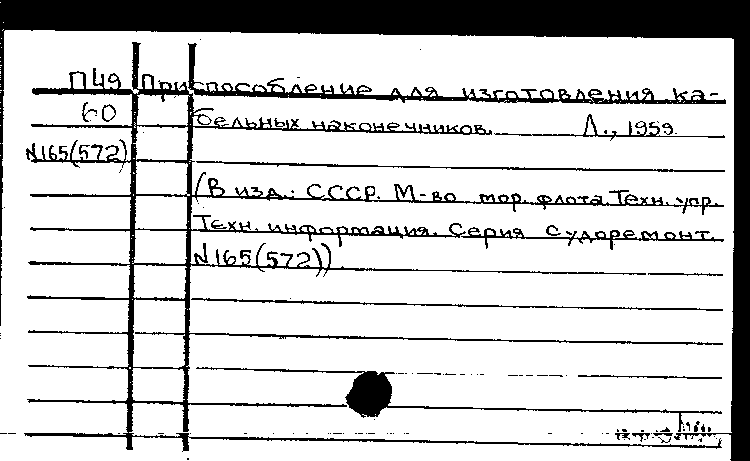 П49 Приспособление для изготовления ка-
60 бельных наконечников. Л., 1959.
N165(572)
(В изд.: СССР. М-во мор. флота. Техн. упр.
Техн. информация. Серия Судоремонт.
N165(572))